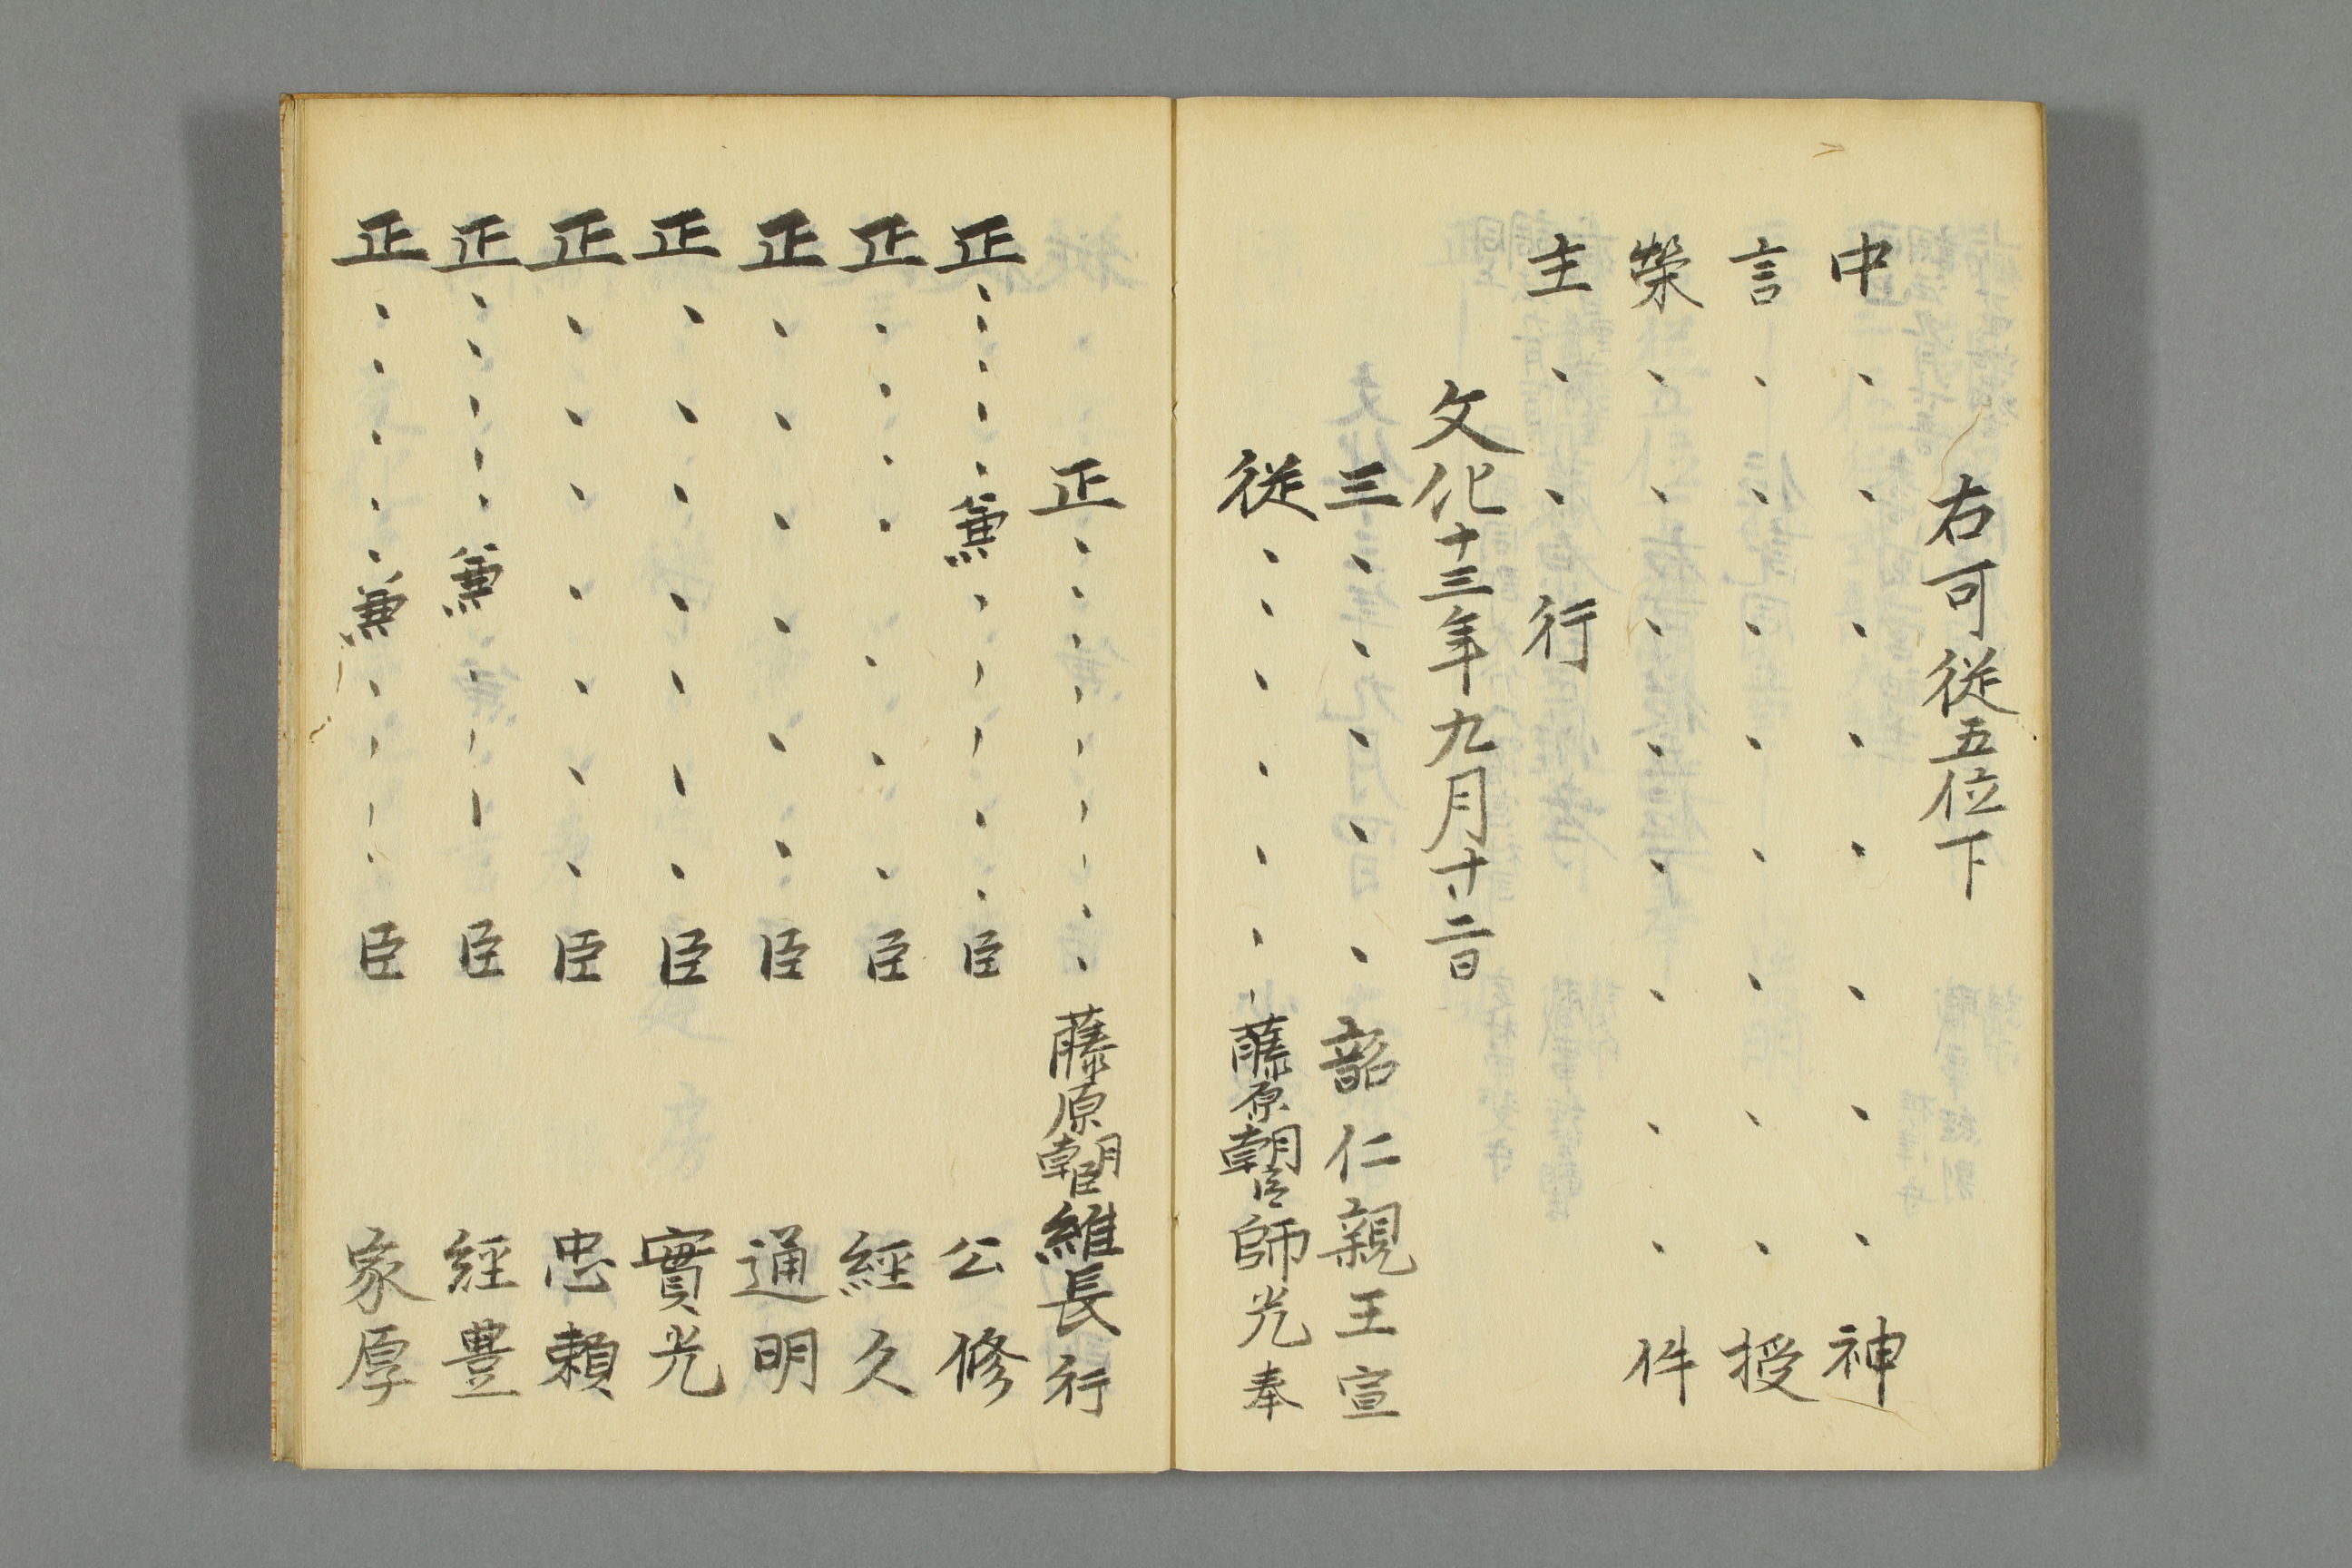 右可從五位下
中、、、、、、、、神
言、、、、、、、、授
榮、、、、、、、、件
主、、行
文化十三年九月廿二日
三、、、、、韶仁親王宣
從、、、、、、、藤原朝臣師光奉
正、、、、、、、、藤原朝臣維長行
正、、、、、兼、、、、、臣 公修
正、、、、、、、臣 經久
正、、、、、、臣 通明
正、、、、、、、臣 實光
正、、、、、、、臣 忠頼
正、、、、、兼、、、臣 經豊
正、、、、、兼、、、、臣 家厚